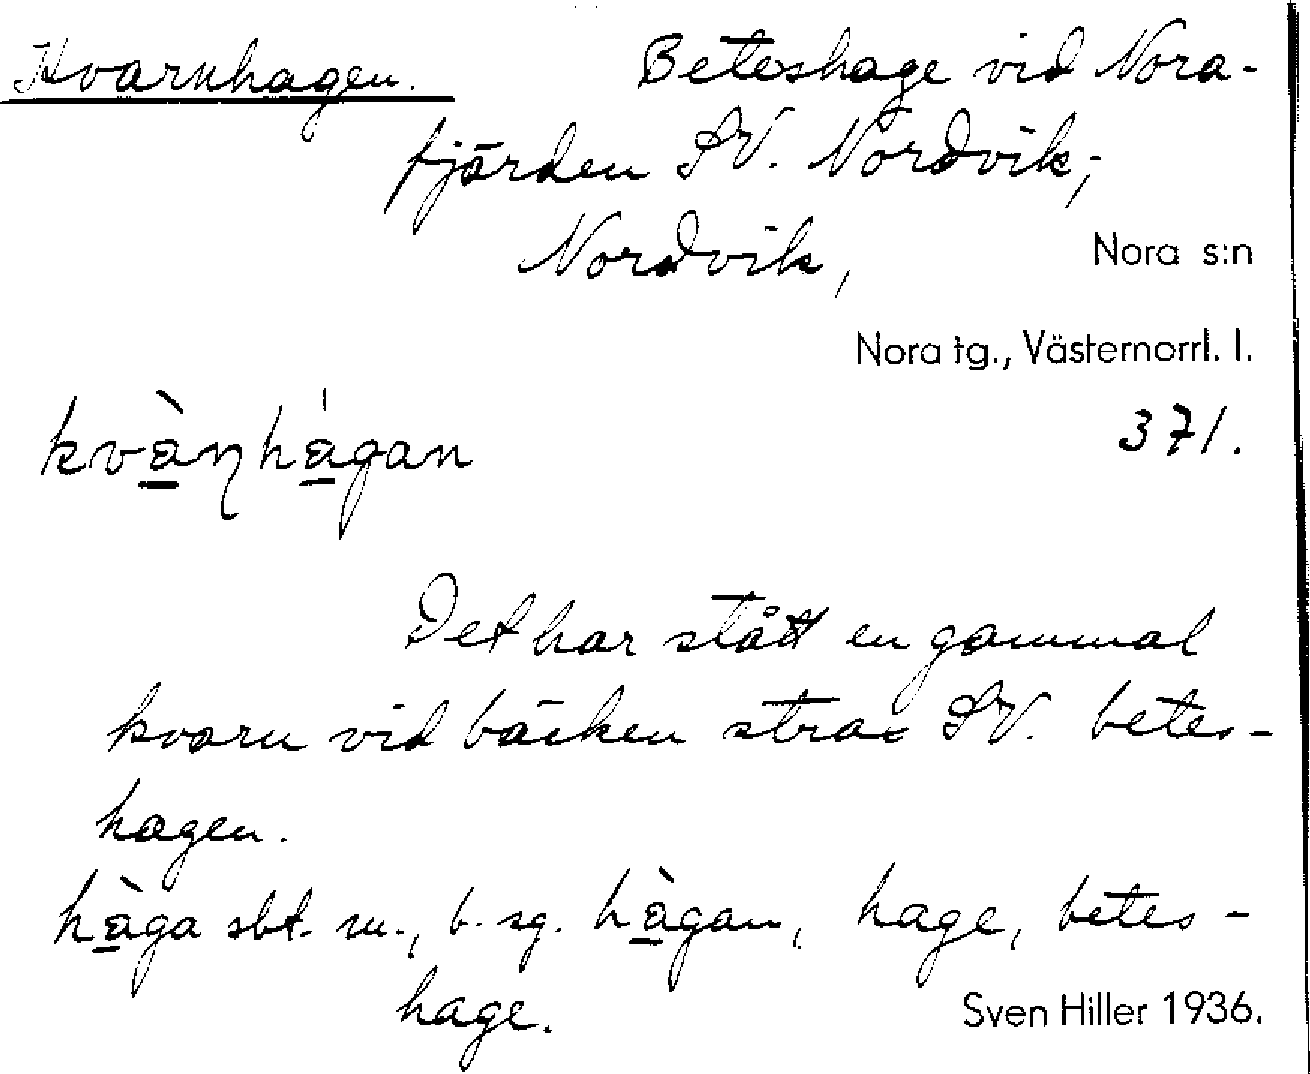 Kvarnhagen. Beteshage vid Nora-
fjärden SV. Nordvik;
Nordvik, Nora s:n
Nora tg., Västernorrl. l.
371.
kvàɳhágan
Det har stått en gammal
kvarn vid bäcken strax SV. betes-
hagen.
hàga sbt. m., b. sg. hàgan, hage, betes-
hage.
Sven Hiller 1936.